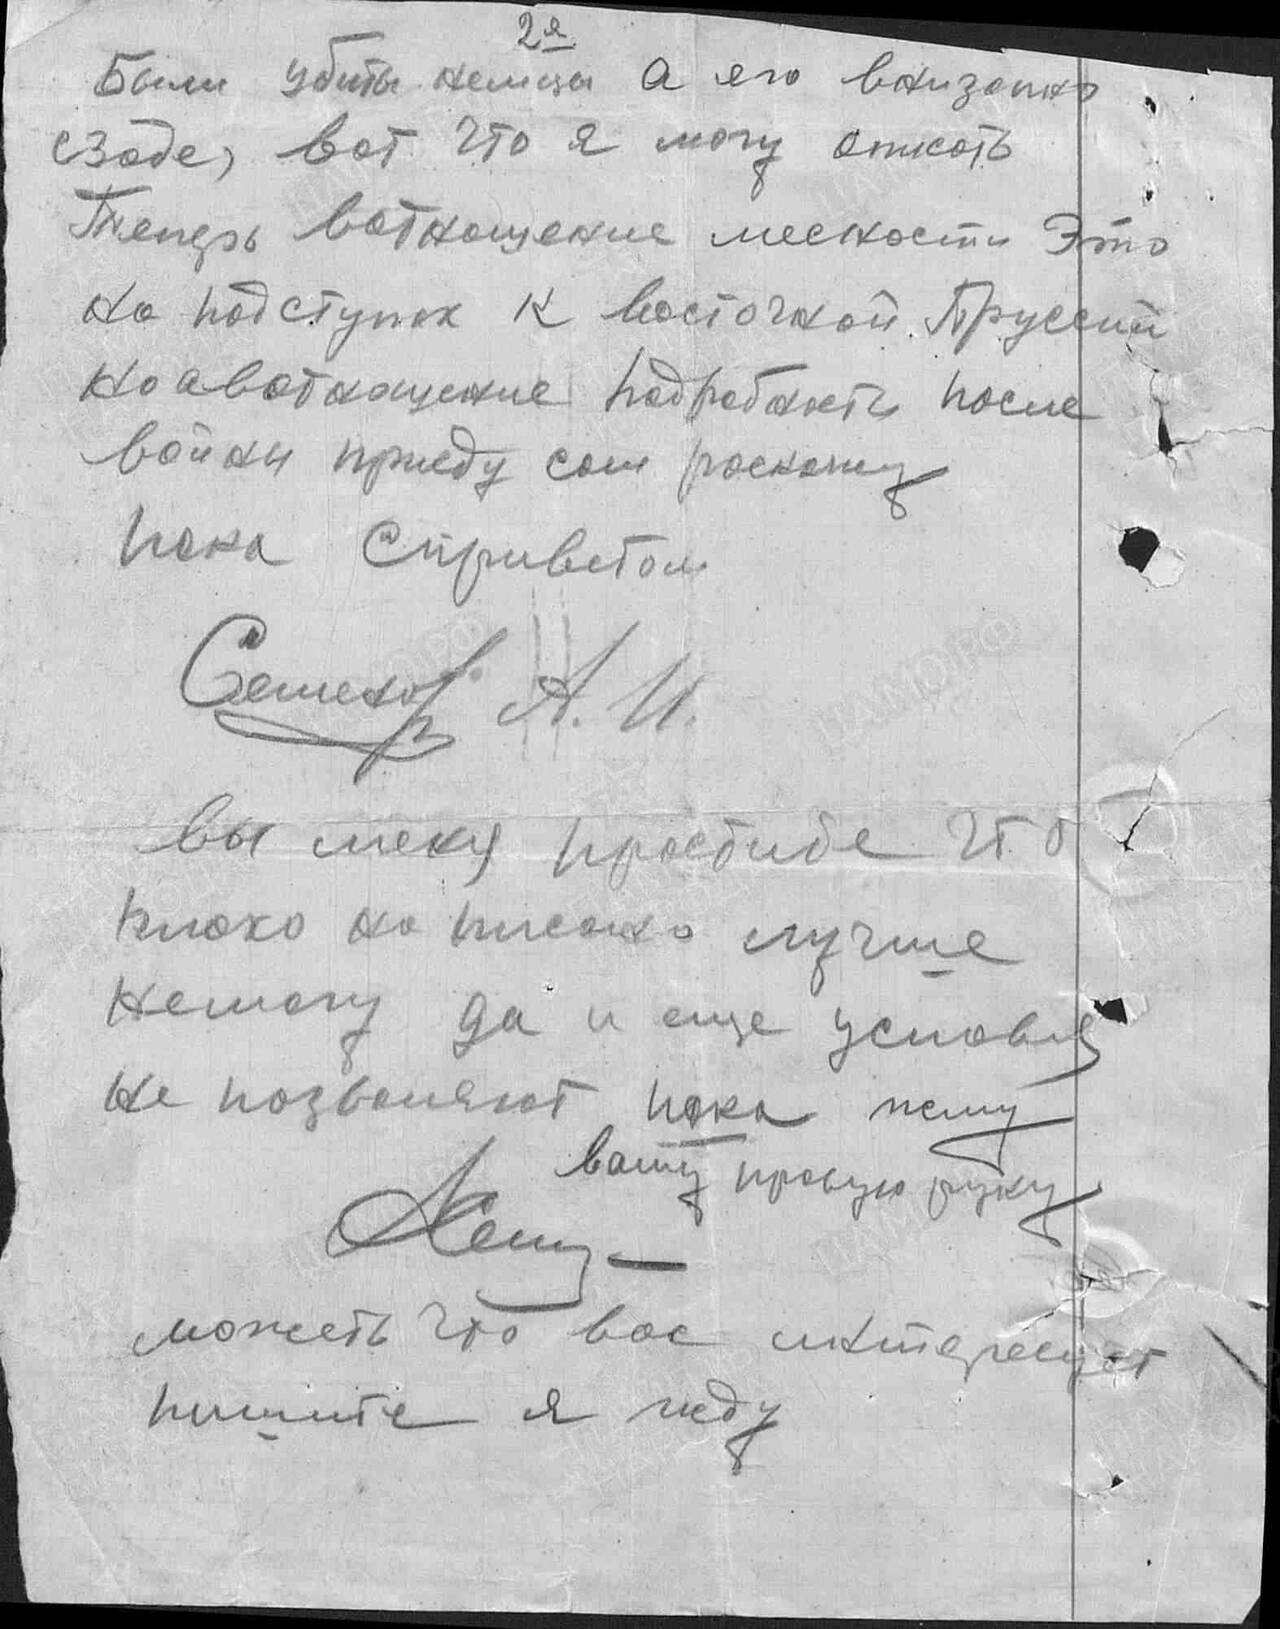 2я
Были убиты немцы а его внизапно
сзаде, вот что я могу описать
Теперь вотнощение месности Это
на подступах к восточной Пруссии
но авотнащение подробность после
войны приеду сам роскажу
пока Сприветом
Семенов А. И.
вы меня простите что
плохо на писано лучше
немогу да и еще условия
не позволяют пока жму
вашу правую руку
можеть что вас интересует
пишите я жду